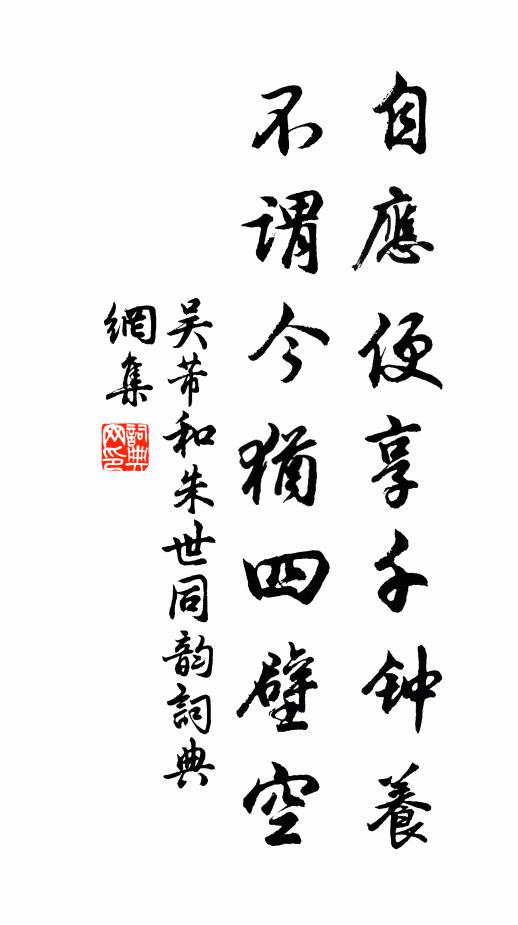 自應便享千钟養
不謂今猶四壁空
吴芾和朱世同韵詞典
網集
詞典网印